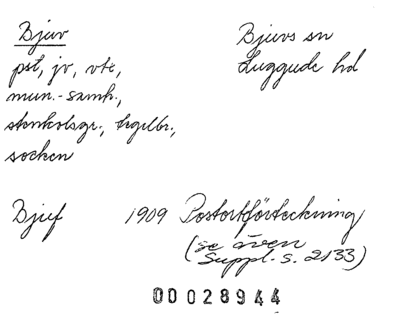 Bjuv
Bjuvs sn
pst, jv, vtc,
Luggude hd
mun.-samh.,
stenkolsgr., tegelbr.,
socken
Bjuf 1909 Postortförteckning
(se även
Suppl. s. 2133)
00028944